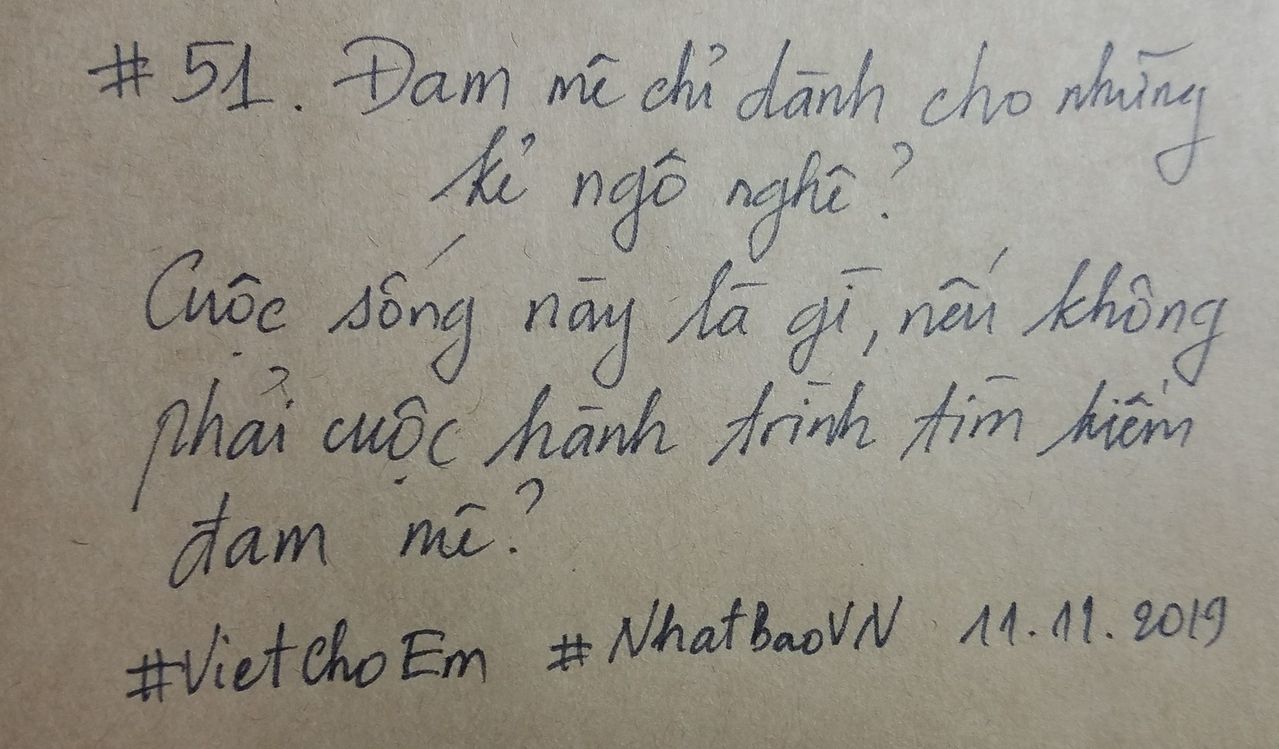 #51. Đam mê chỉ dành cho những
kẻ ngô nghê?
Cuộc sống này là gì, nếu không
phải cuộc hành trình tìm kiếm
đam mê?
#VietChoEm #NhatBaoVN 11.11.2019